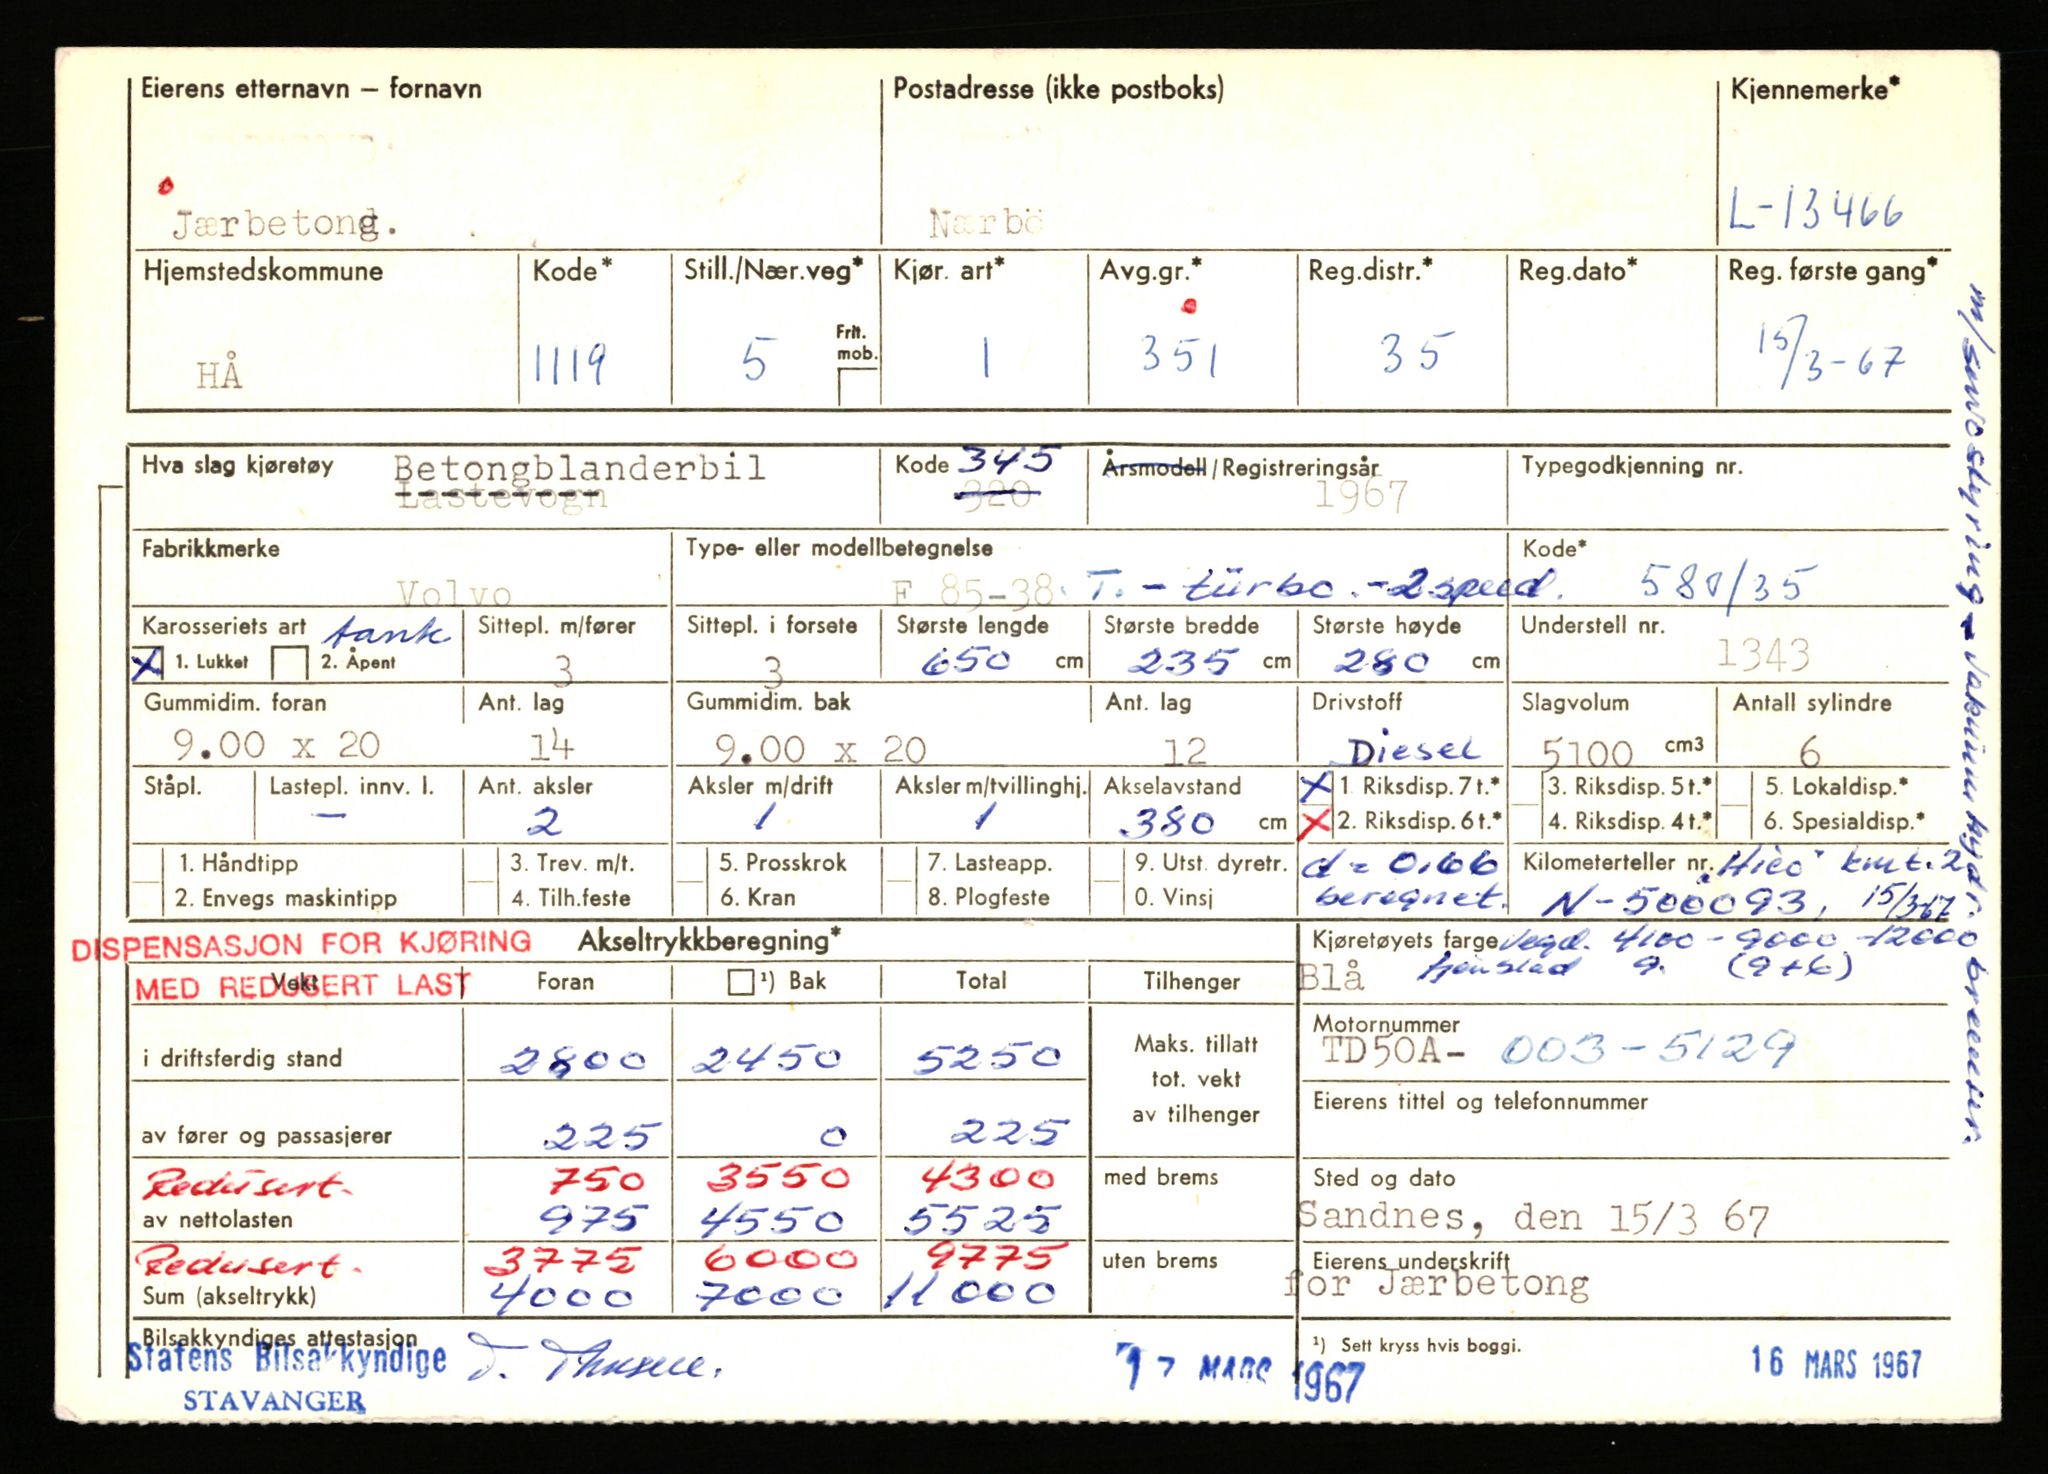 Eierens etternavn – fornavn Postadresse (ikke postboks) Kjennemerke*
Jærbetong. Nærbö L-13466
Hjemstedskommune Kode* Still./Nær.veg* Kjør. art* Avg.gr.* Reg.distr.* Reg.dato* Reg. første gang*
Frit. mob.
HÅ 1119 5 1 351 35 15/3-67
Hva slag kjøretøy Betongblanderbil Kode 345 Årsmodell/Registreringsår Typegodkjenning nr.
Lastevogn 320 1967
Fabrikkmerke Type- eller modellbetegnelse Kode*
Volvo F 85-38 T. - türbo. - 2 speed. 580/35
Karosseriets art tank Sittepl. m/fører Sittepl. i forsete Største lengde Største bredde Største høyde Understell nr.
X 1. Lukket 2. Åpent 3 3 650 cm 235 cm 280 cm 1343
Gummidim. foran Ant. lag Gummidim. bak Ant. lag Drivstoff Slagvolum Antall sylindre
9.00 x 20 14 9.00 x 20 12 Diesel 5100 cm3 6
Ståpl. Lastepl. innv. l. Ant. aksler Aksler m/drift Aksler m/tvillinghj. Akselavstand X 1. Riksdisp. 7 t.* 3. Riksdisp. 5 t.* 5. Lokaldisp.*
– 2 1 1 380 cm X 2. Riksdisp. 6 t.* 4. Riksdisp. 4 t.* 6. Spesialdisp.*
1. Håndtipp 3. Trev. m/t. 5. Prosskrok 7. Lasteapp. 9. Utst. dyretr. d = 0.66 Kilometerteller nr. "Hico" kmt. 2
2. Envegs maskintipp 4. Tilh.feste 6. Kran 8. Plogfeste 0. Vinsj beregnet. N-500093, 15/3-67
DISPENSASJON FOR KJØRING Akseltrykkberegning* Kjøretøyets farge Vegd. 4100 - 9000 - 12000
MED REDUSERT LAST Blå 9. (9+6)
Vekt Foran ¹) Bak Total Tilhenger
Motornummer
i driftsferdig stand 2800 2450 5250 Maks. tillatt TD50A- 003-5129
tot. vekt
av tilhenger Eierens tittel og telefonnummer
av fører og passasjerer 225 0 225
Redusert. 750 3550 4300 med brems Sted og dato
av nettolasten 975 4550 5525 Sandnes, den 15/3 67
Redusert. 3775 6000 9775 uten brems Eierens underskrift
Sum (akseltrykk) 4000 7000 11000 for Jærbetong
Bilsakkyndiges attestasjon ¹) Sett kryss hvis boggi.
Statens Bilsakkyndige 17 MARS 1967 16 MARS 1967
STAVANGER
m/servostyring - Vakuum hydr. bremser.